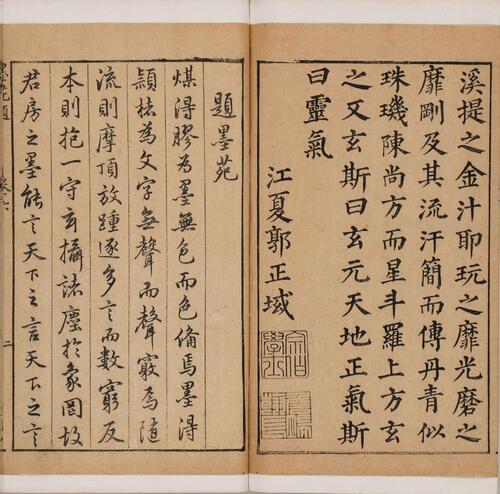 溪提之金汁耶玩之靡光磨之
靡剛及其流汗簡而傳丹青似
珠璣陳尚方而星斗羅上方玄
之又玄斯曰玄元天地正氣斯
曰靈氣
江夏郭正域
題墨苑
煤得膠為墨無色而色備焉墨得
穎楮為文字無聲而聲竅焉隨
流則摩頂放踵逐多言而數窮反
本則抱一守玄攝諸塵於象罔故
君房之墨能言天下之言天下之言